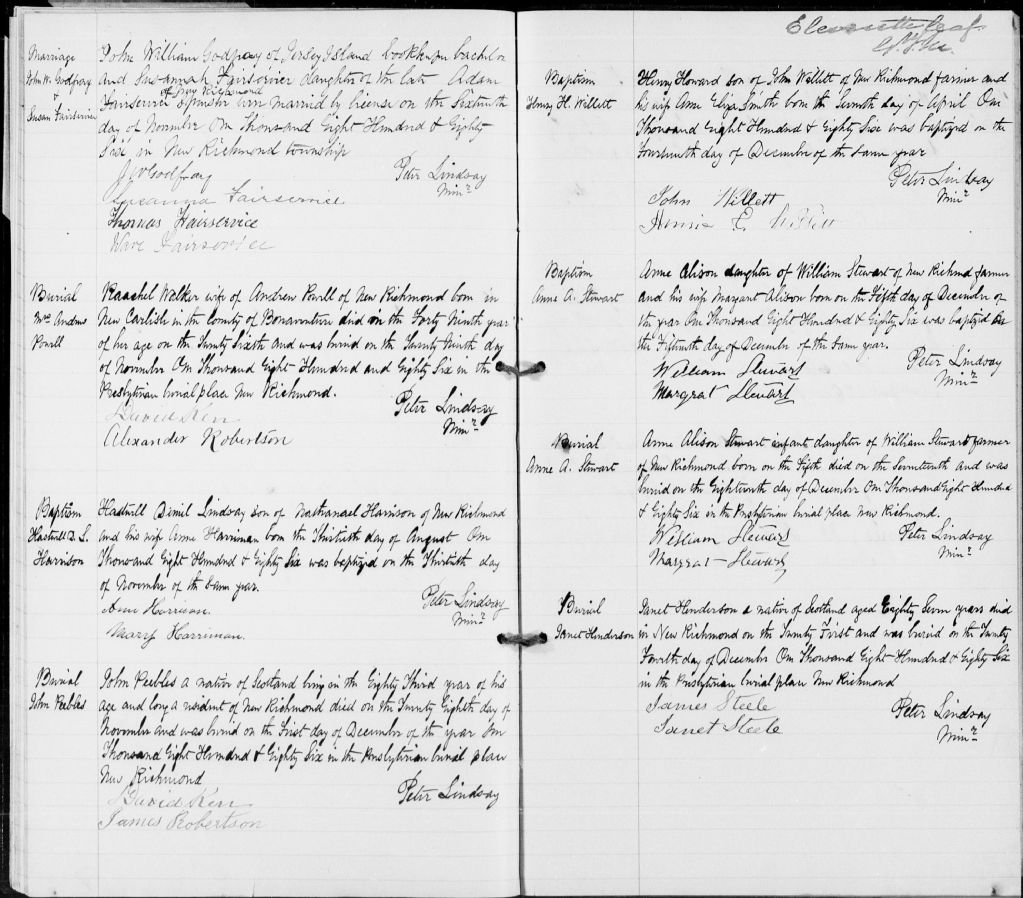 Marriage
John W. Godfray
&
Susan Fairservice
John William Godfray of Jersey Island bookkeeper bachelor
and Susannah Fairservice daughter of the late Adam
of New Richmond
Fairservice spinster were married by license on the Sixteenth
day of November One Thousand Eight Hundred & Eighty
Six in New Richmond township
J W Godfray
Peter Lindsay
Minr
Susanna Fairservice
Thomas Fairservice
Fairservice
Burial
Mrs Andrew
Powell
Raachel Walker wife of Andrew Powell of New Richmond born in
New Carlisle in the County of Bonaventure died in the Forty Ninth year
of her age on the Twenty Sixth and was buried on the Twenty Ninth day
of November One Thousand Eight Hundred and Eighty Six in the
Presbyterian burial place New Richmond.
David Kerr
Peter Lindsay
Minr
Alexander Robertson
Baptism
Harrison
Lindsay son of Nathanael Harrison of New Richmond
and his wife Anne Harriman born the Thirtieth day of August One
Thousand Eight Hundred & Eighty Six was baptized on the Thirtieth day
of November of the same year.
Anne Harrison.
Peter Lindsay
Minr
Mary Harriman.
Burial
John Peebles
John Peebles a native of Scotland being in the Eighty Third year of his
age and long a resident of New Richmond died on the Twenty Eighth day of
November and was buried on the First day of December of the year One
Thousand Eight Hundred & Eighty Six in the Presbyterian burial place
New Richmond
David Kerr
Peter Lindsay
James Robertson
Eleventh leaf
Baptism
Henry H. Willett
Henry Howard son of John Willett of New Richmond farmer and
his wife Anne Eliza Smith born the Seventh day of April One
Thousand Eight Hundred & Eighty Six was baptized on the
Fourteenth day of December of the same year
Peter Lindsay
Minr
John Willett
E. Willett
Baptism
Anne A. Stewart
Anne Alison daughter of William Stewart of New Richmond farmer
and his wife Margaret Alison born on the Fifth day of December of
the year One Thousand Eight Hundred & Eighty Six was baptized on
the Fifteenth day of December of the same year.
William Stewart
Peter Lindsay
Minr
Margrat Stewart
Burial
Anne A. Stewart
Anne Alison Stewart infant daughter of William Stewart farmer
of New Richmond born on the Fifth died on the Seventeenth and was
buried on the Eighteenth day of December One Thousand Eight Hundred
& Eighty Six in the Presbyterian burial place New Richmond.
William Stewart
Peter Lindsay
Minr
Margrat Stewart
Burial
Janet Henderson
Janet Henderson a native of Scotland aged Eighty Seven years died
in New Richmond on the Twenty First and was buried on the Twenty
Fourth day of December One Thousand Eight Hundred & Eighty Six
in the Presbyterian burial place New Richmond
James Steele
Peter Lindsay
Minr
Janet Steele